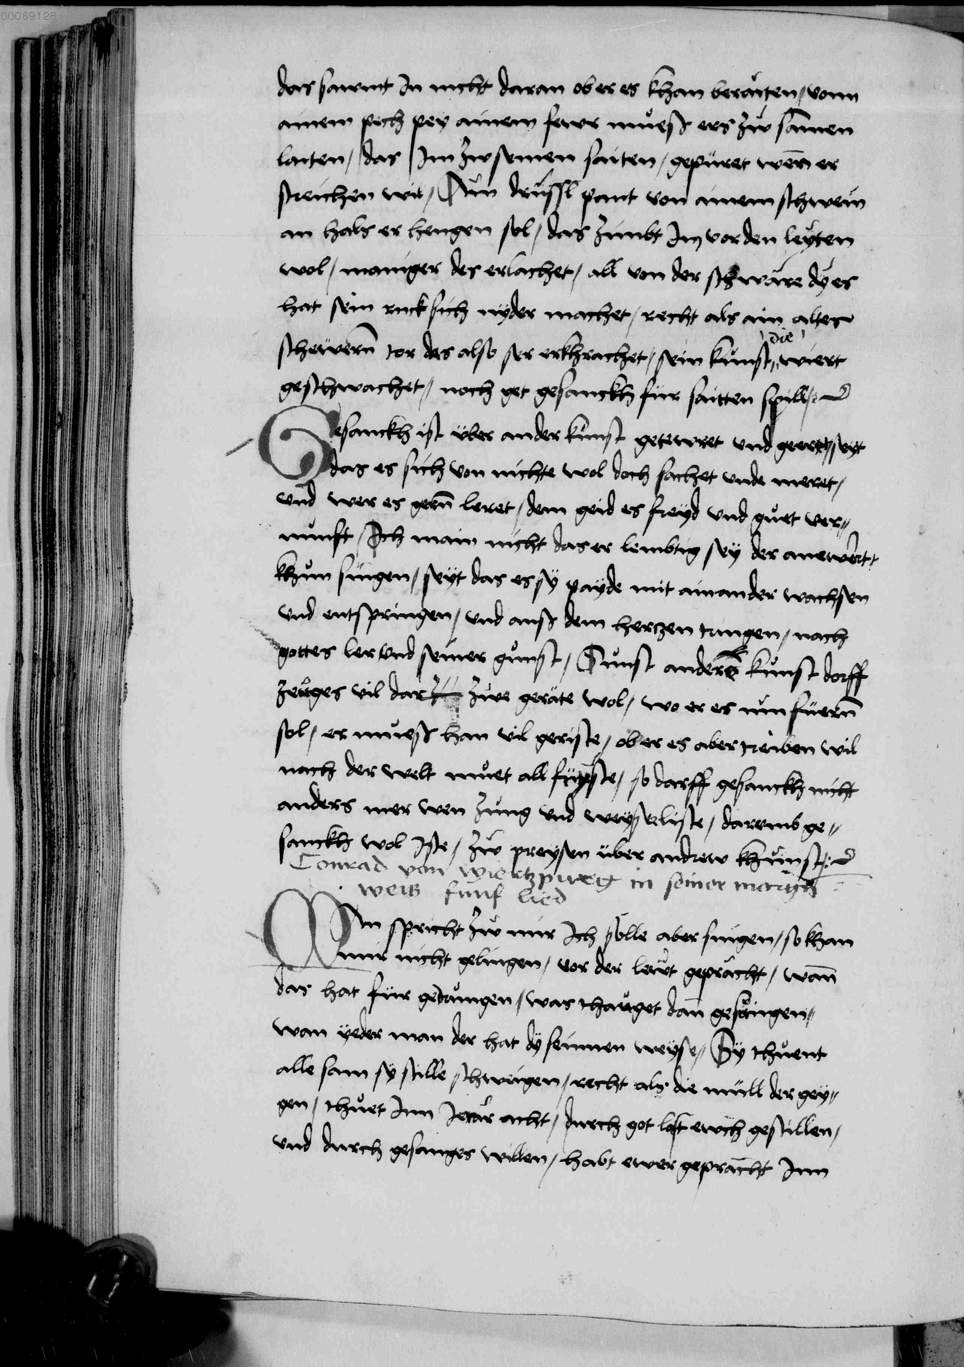 00069128
das saumt In nicht daran ob er es khan beraiten / vonn
ainem pech pey ainem fewr muest ers zw samen
laiten / das Im zw seinen saiten / gepüret wen̄ er
streichen wil / Ain drussl pant von ainem schwein
an hals er hengen sol / das zimbt Im vor den leyten
wol / maniger des erlachet / all von der schwäre dy es
hat sein ruck sich nyder machet / recht als ain altes
scheweren̄ tor des also ser erkhrachet / sein kunst die wiert
geschwachet / noch get gesanckh für saitten spill
Gesanckh ist über ander kunst getewret und geert seyt
das es sich von nichte wol doch sachet unde meret /
und wer es gern̄ leret / dem geid es freyd und guet ver=
nunft / Ich main nicht das er lembtig sey der anewert
khun singen / seyt das es sy payde mit ainander wachsen
und entspringen / und auss dem herczen tringen / nach
gottes ler und seiner gunst / Sunst andere kunst dorff
zeuges vil dar zue geräte wol / wo er es nun füern̄
sol / er muest han vil geriste / ob er es aber treiben wil
nach der welt muet all / so darff gesanckh nicht
anders mer wen zung und / darumb ge=
sanckh wol iste / zw preysen über andrew khunst
Conrad von wiertzpurg in seiner
weis funf lied
Man spricht zw mir Ich solle aber singen / so khan
mir nicht gelingen / vor der lewt gepracht / wan̄
das hat für gedrungen / was thauget dan̄ gesungen /
wan yeder man der hat dy seinnen weyse / Sy thuent
alle sam sy stille schweigen / recht als die müll der gey=
gen / thuet Inn acht / durch got last ewch gestillen /
und durch gesanges willen / habt ewer gepracht Inn